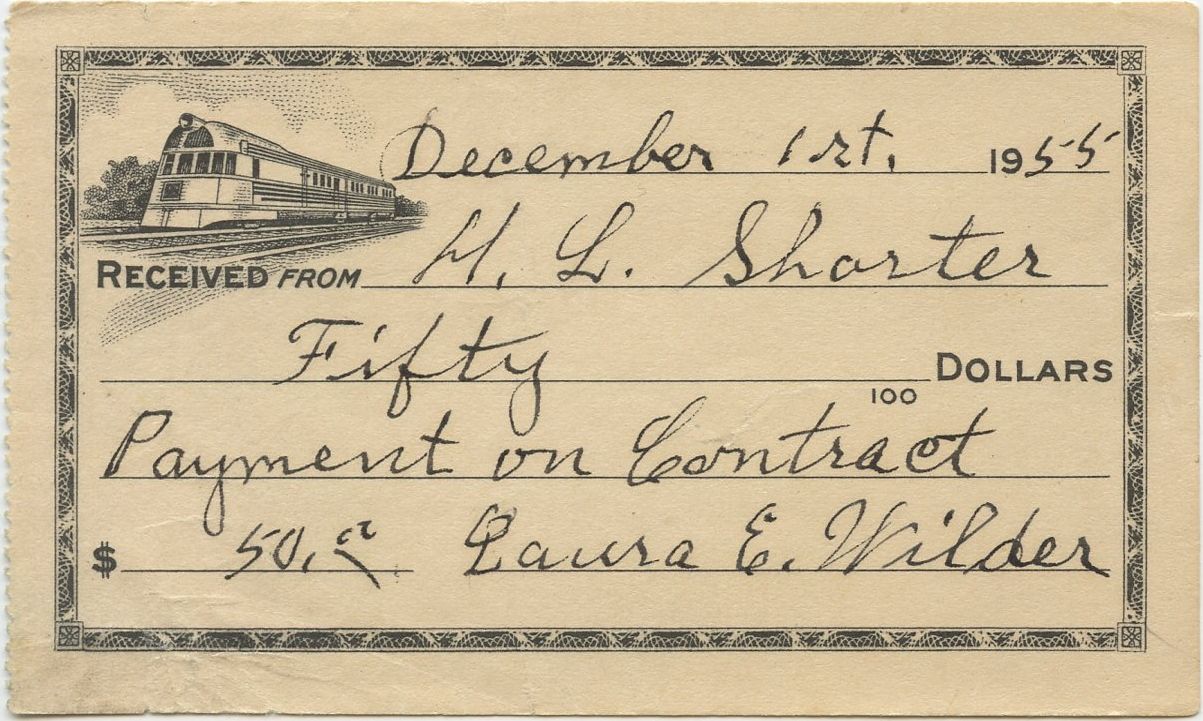 December 1st, 1955
RECEIVED FROM H. L. Shorter
Fifty DOLLARS
100
Payment on Contract
$ 50.00 Laura E. Wilder